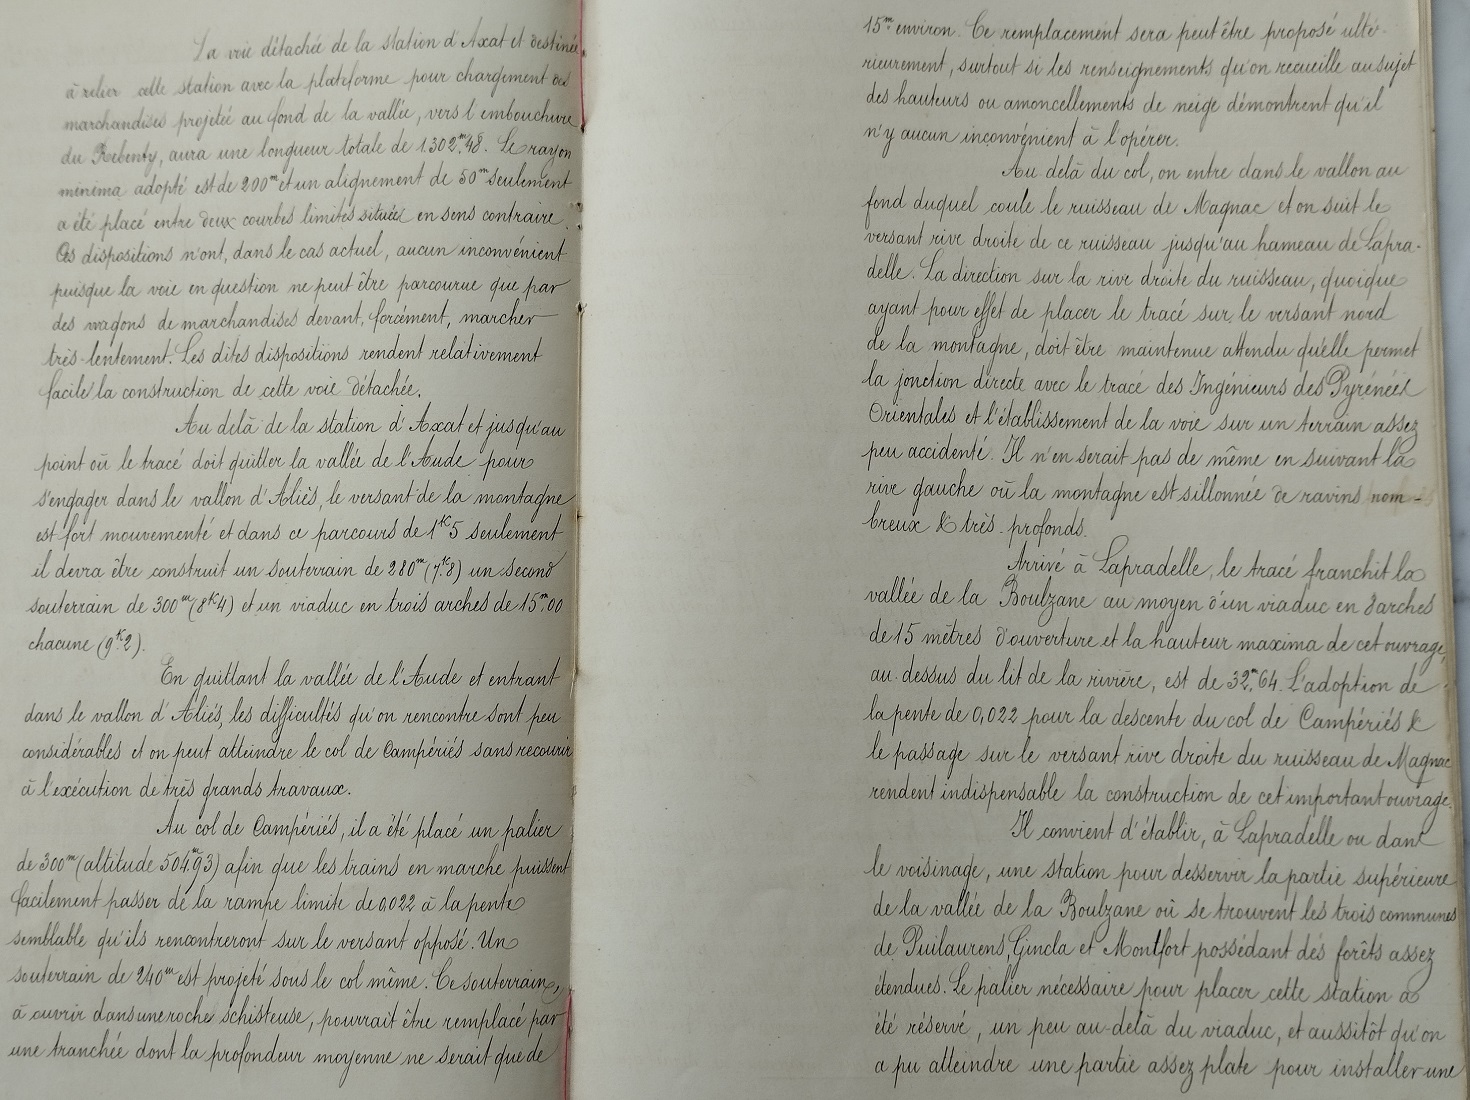 La voie détachée de la station d'Axat et destinée
à relier cette station avec la plateforme pour chargement des
marchandises projetée au fond de la vallée, vers l'embouchure
du Rebenty, aura une longueur totale de 1.302.m48. Le rayon
minima adopté est de 200m et un alignement de 50m seulement
a été placé entre deux courbes limites située en sens contraire.
Ces dispositions n'ont, dans le cas actuel, aucun inconvénient
puisque la voie en question ne peut être parcourue que par
des wagons de marchandises devant, forcément, marcher
très-lentement. Les dites dispositions rendent relativement
facile la construction de cette voie détachée.
Au delà de la station d'Axat et jusqu'au
point où le tracé doit quitter la vallée de l'Aude pour
s'engager dans le vallon d'Aliès, le versant de la montagne
est fort mouvementé et dans ce parcours de 1K5 seulement
il devra être construit un souterrain de 280m (7K8) un second
souterrain de 300m (8K4) et un viaduc en trois arches de 15m,00
chacune (9K2).
En quittant la vallée de l'Aude et entrant
dans le vallon d'Aliès, les difficultés qu'on rencontre sont peu
considérables et on peut atteindre le col de Campériés sans recourir
à l'exécution de très grands travaux.
Au col de Campériés, il a été placé un palier
de 300m (altitude 504m,93) afin que les trains en marche puissent
facilement passer de la rampe limite de 0,022 à la pente
semblable qu'ils rencontreront sur le versant opposé. Un
souterrain de 240m est projeté sous le col même. Ce souterrain,
à ouvrir dans une roche schisteuse, pourrait être remplacé par
une tranchée dont la profondeur moyenne ne serait que de
15m environ. Ce remplacement sera peut être proposé ulté-
rieurement, surtout si les renseignements qu'on recueille au sujet
des hauteurs ou amoncellements de neige démontrent qu'il
n'y aucun inconvénient à l'opérer.
Au delà du col, on entre dans le vallon au
fond duquel coule le ruisseau de Magnac et on suit le
versant rive droite de ce ruisseau jusqu'au hameau de Lapra-
delle. La direction sur la rive droite du ruisseau, quoique
ayant pour effet de placer le tracé sur le versant nord
de la montagne, doit être maintenue attendu qu'elle permet
la jonction directe avec le tracé des Ingénieurs des Pyrénées
Orientales et l'établissement de la voie sur un terrain assez
peu accidenté. Il n'en serait pas de même en suivant la
rive gauche où la montagne est sillonnée de ravins nom-
breux & très-profonds.
Arrivé à Lapradelle, le tracé franchit la
vallée de la Boulzane au moyen d'un viaduc en 8 arches
de 15 mètres d'ouverture et la hauteur maxima de cet ouvrage,
au dessus du lit de la rivière, est de 32m,64. L'adoption de
la pente de 0,022 pour la descente du col de Campériés &
le passage sur le versant rive droite du ruisseau de Magnac
rendent indispensable la construction de cet important ouvrage.
Il convient d'établir, à Lapradelle ou dans
le voisinage, une station pour desservir la partie supérieure
de la vallée de la Boulzane où se trouvent les trois communes
de Puilaurens, Gincla et Montfort possédant des forêts assez
étendues. Le palier nécessaire pour placer cette station a
été réservé, un peu au-delà du viaduc, et aussitôt qu'on
a pu atteindre une partie assez plate pour installer une